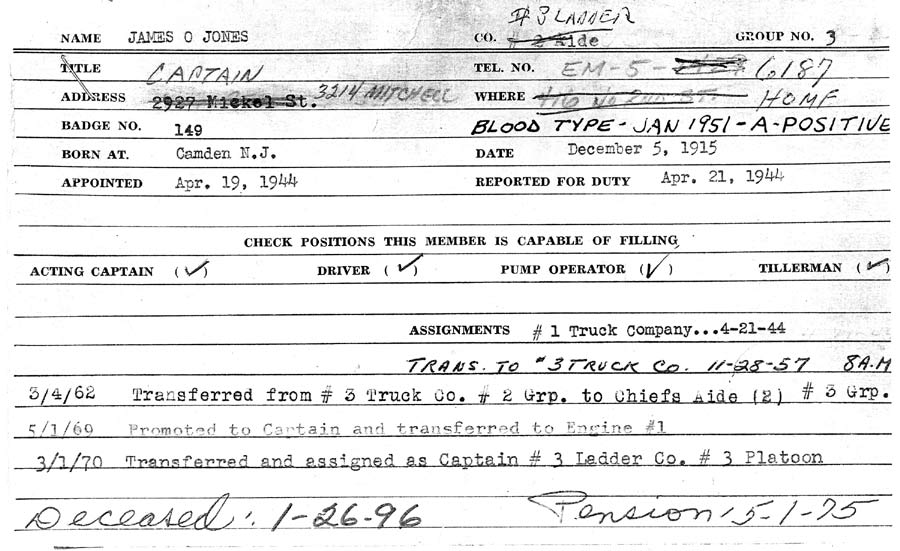 # 3 LADDER
NAME JAMES O JONES CO. # 2 Aide GROUP NO. 3
TITLE CAPTAIN TEL. NO. EM-5- 6187
ADDRESS 2927 Mickel St. 3214 MITCHELL WHERE HOME
BADGE NO. 149 BLOOD TYPE - JAN 1951 - A-POSITIVE
BORN AT. Camden N.J. DATE December 5, 1915
APPOINTED Apr. 19, 1944 REPORTED FOR DUTY Apr. 21, 1944
CHECK POSITIONS THIS MEMBER IS CAPABLE OF FILLING
ACTING CAPTAIN (✓) DRIVER (✓) PUMP OPERATOR (✓) TILLERMAN (✓)
ASSIGNMENTS # 1 Truck Company...4-21-44
TRANS. TO #3 TRUCK CO. 11-28-57 8 A.M
3/4/62 Transferred from # 3 Truck Co. # 2 Grp. to Chiefs Aide (2) # 3 Grp.
5/1/69 Promoted to Captain and transferred to Engine #1
3/1/70 Transferred and assigned as Captain # 3 Ladder Co. # 3 Platoon
Deceased: 1-26-96 Pension: 5-1-75